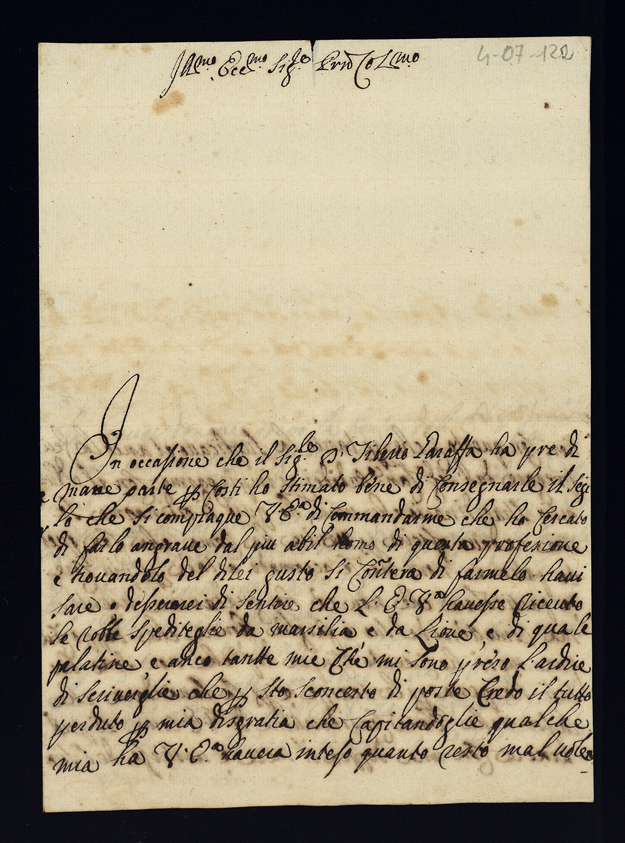 Illmo Eccmo Sigre Prôn Colmo
4-07-122
In occasione che il Sigre D. Tiberio Paraffa ha pre di
mane parte costi ho stimato bene di Consegnarle il sigi
lo che si compiaque V Ea di Commandarme che ho Cercato
di farlo angrave dal piu abil homo di questa profesione
e trovandolo del di lei gusto si Contera di farmelo havi
sare e desserei di sentire che L. E. Va havesse riceuto
le robbe speditegli da marsilia e da Lione e di quale
palatine e anco tantte mie Che mi sono preso L'ardire
di scrivergli che sto sconcerto di poste Credo il tutto
perduto mia disgratia che Capitandoglie qualche
mia ha V. Ea havera inteso quanto resto mal